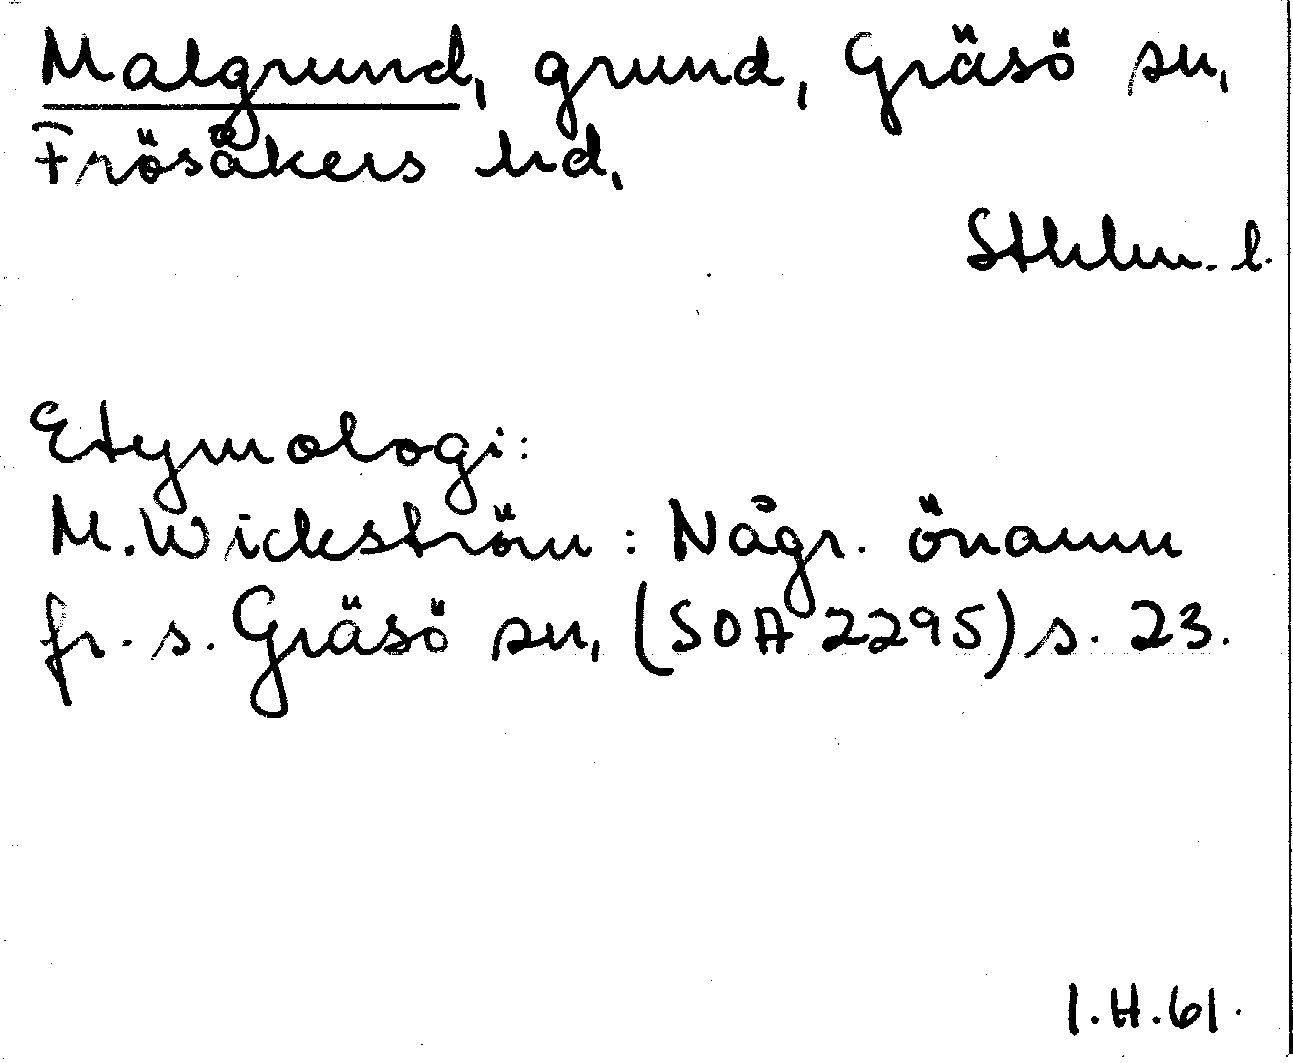 Malgrund, grund, Gräsö sn,
Frösåkers hd,
Sthlm. l.
Etymologi:
M. Wickström: Någr. önamn
fr. s. Gräsö sn, (SOA 2295) s. 23.
I.H.61.